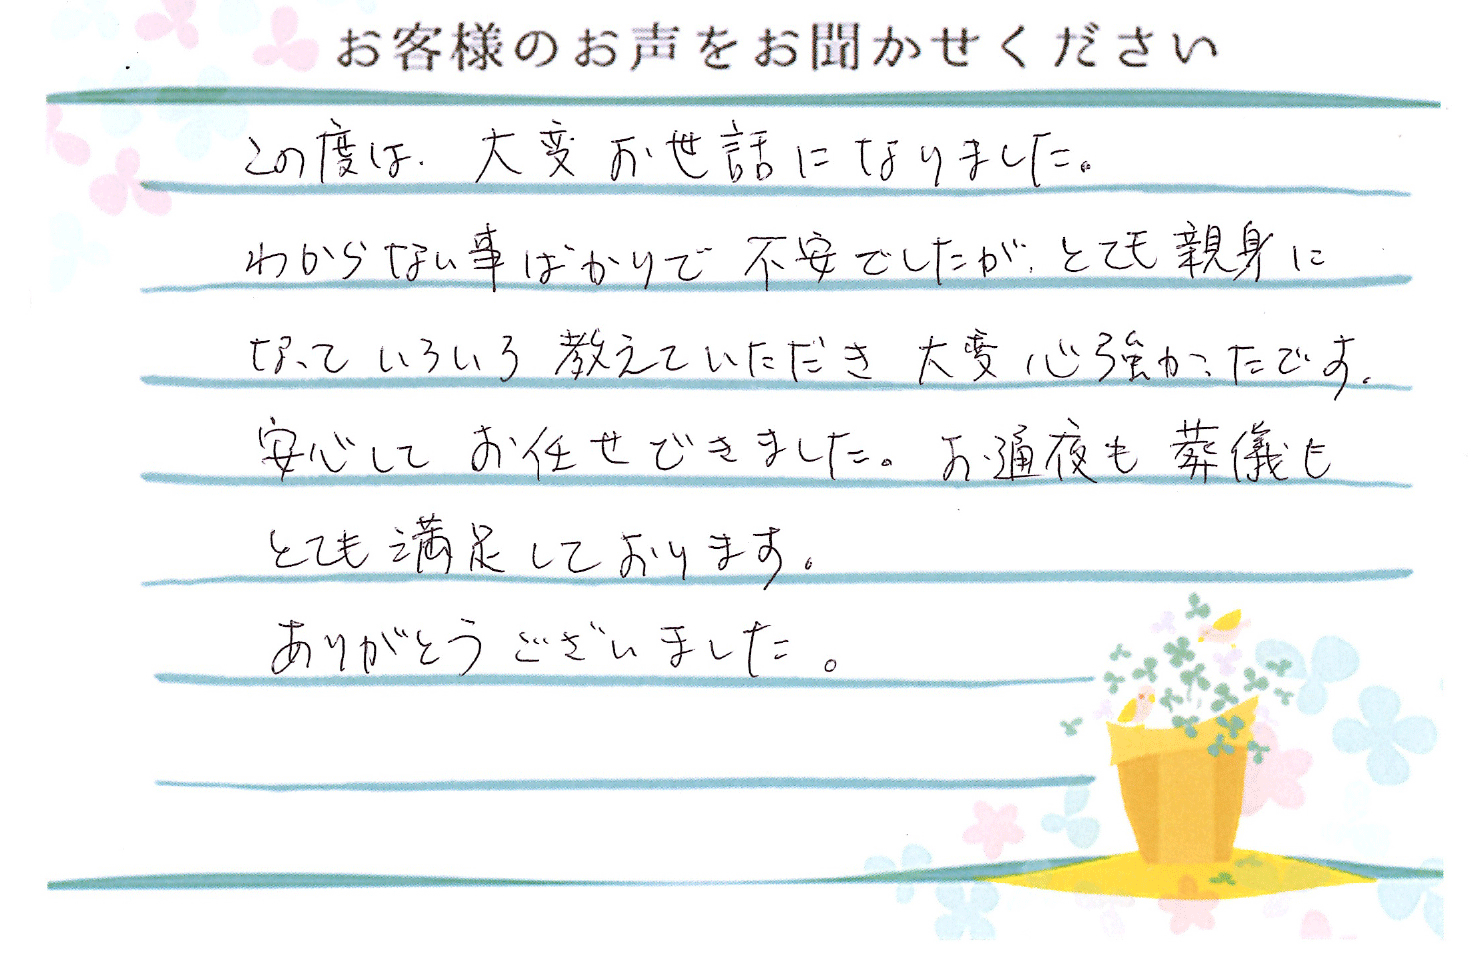 お客様のお声をお聞かせください
この度は、大変お世話になりました。
わからない事ばかりで不安でしたが、とても親身に
なっていろいろ教えていただき大変心強かったです。
安心してお任せできました。お通夜も葬儀も
とても満足しております。
ありがとうございました。